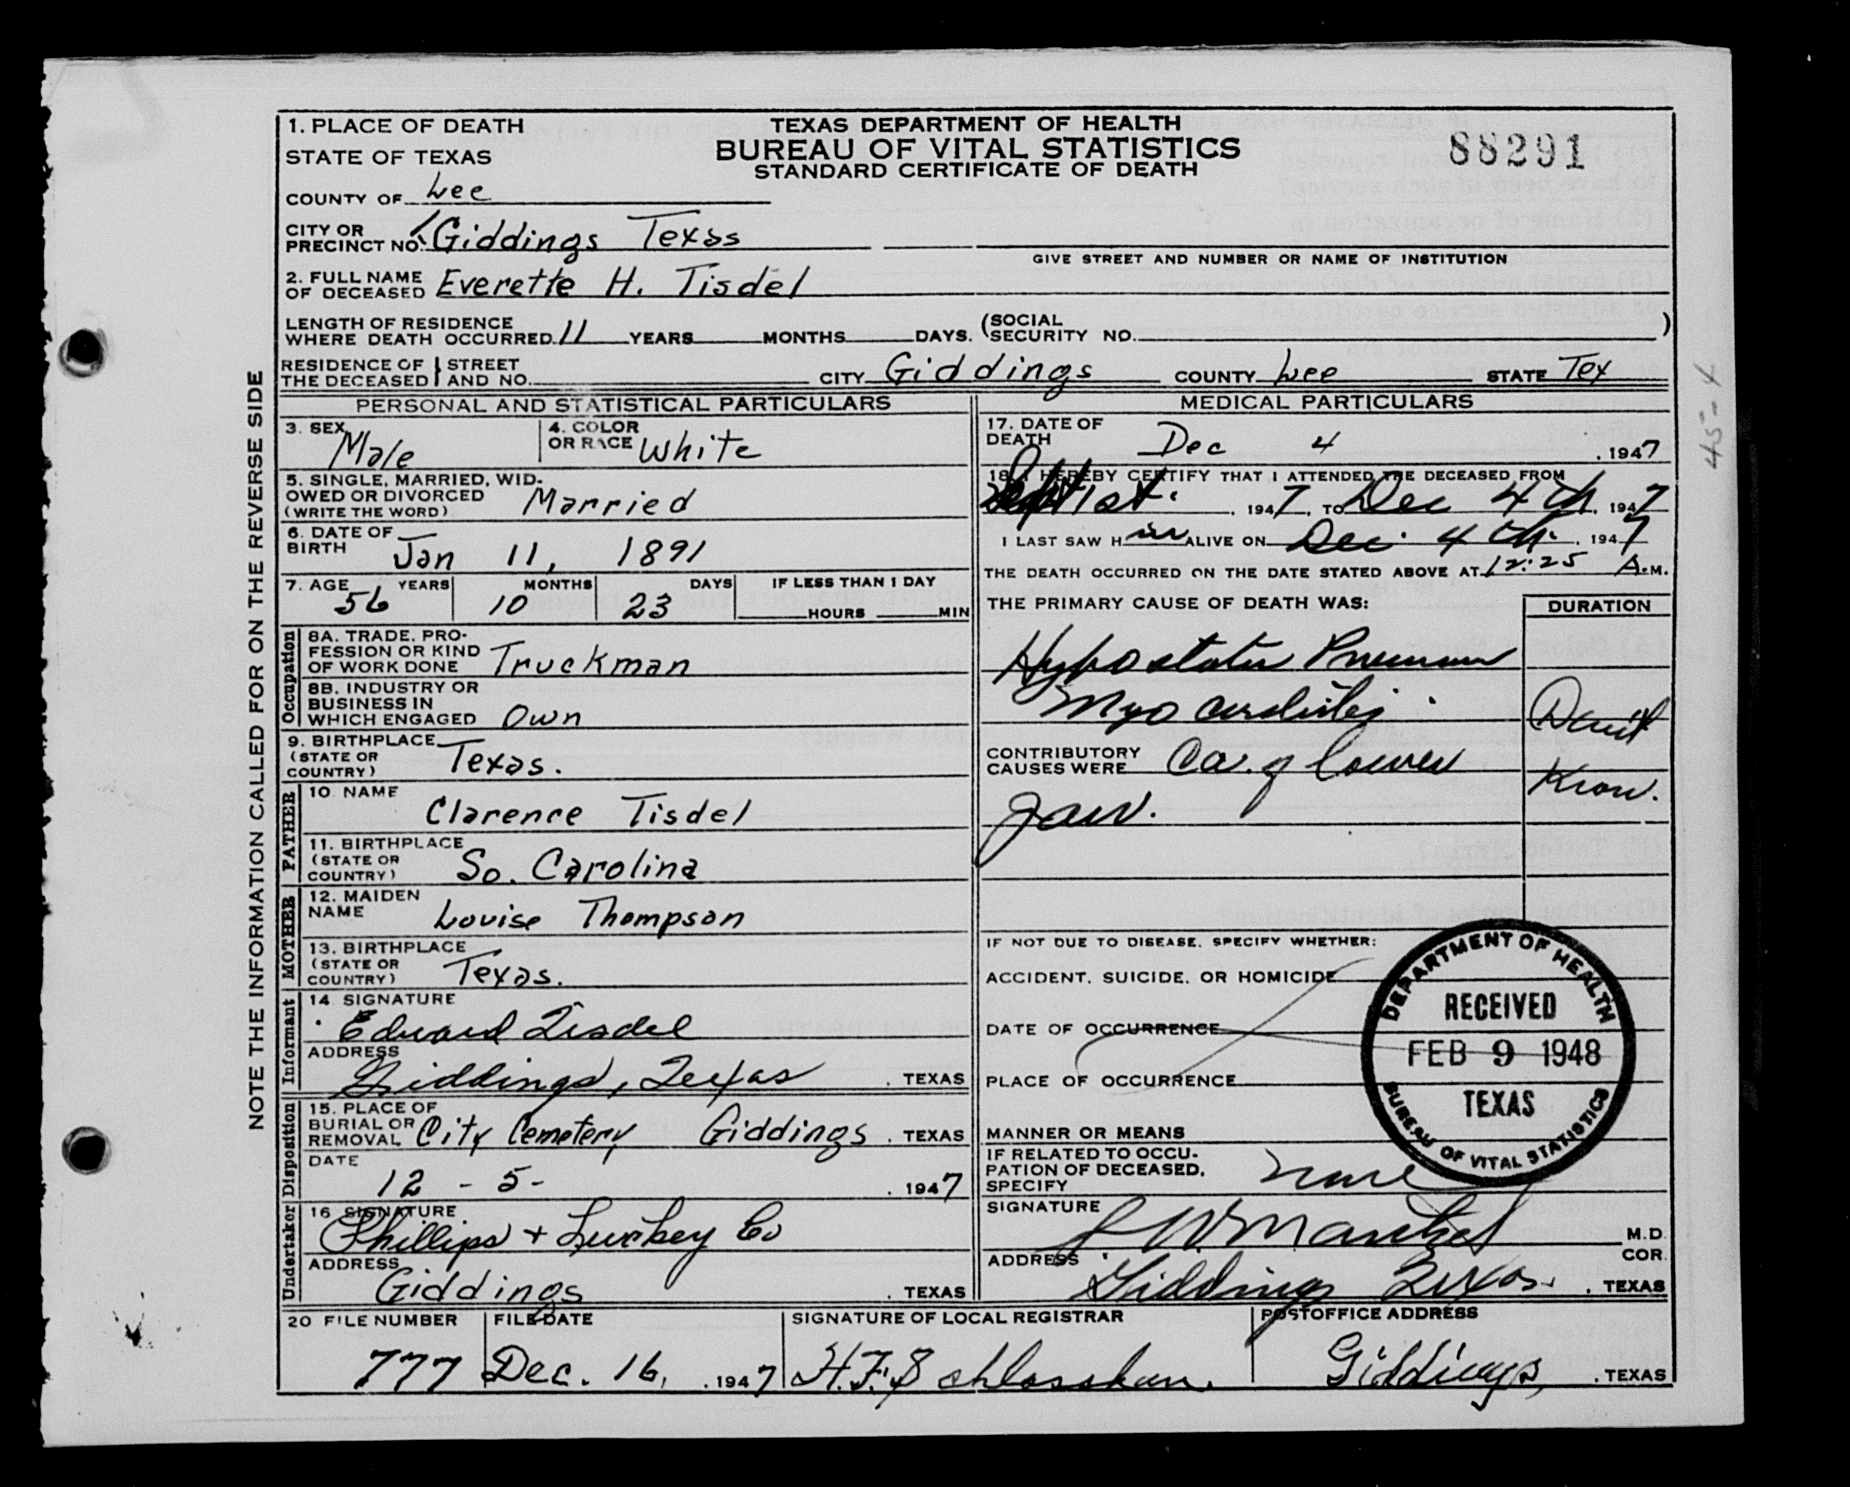 1. PLACE OF DEATH
STATE OF TEXAS
TEXAS DEPARTMENT OF HEALTH
BUREAU OF VITAL STATISTICS
STANDARD CERTIFICATE OF DEATH
88291
COUNTY OF Lee
CITY OR PRECINCT NO. Giddings Texas
GIVE STREET AND NUMBER OR NAME OF INSTITUTION
2. FULL NAME OF DECEASED Everette H. Tisdel
LENGTH OF RESIDENCE WHERE DEATH OCCURRED 11 YEARS MONTHS DAYS. (SOCIAL SECURITY NO. )
RESIDENCE OF THE DECEASED STREET AND NO. CITY Giddings COUNTY Lee STATE Tex
PERSONAL AND STATISTICAL PARTICULARS
3. SEX Male 4. COLOR OR RACE White
5. SINGLE, MARRIED, WIDOWED OR DIVORCED (WRITE THE WORD) Married
6. DATE OF BIRTH Jan 11, 1891
7. AGE YEARS MONTHS DAYS IF LESS THAN 1 DAY
56 10 23 HOURS MIN
Occupation
8A. TRADE, PROFESSION OR KIND OF WORK DONE Truckman
8B. INDUSTRY OR BUSINESS IN WHICH ENGAGED Own
9. BIRTHPLACE (STATE OR COUNTRY) Texas.
FATHER
10 NAME Clarence Tisdel
11. BIRTHPLACE (STATE OR COUNTRY) So. Carolina
MOTHER
12. MAIDEN NAME Louise Thompson
13. BIRTHPLACE (STATE OR COUNTRY) Texas.
Informant
14 SIGNATURE Edward Tisdel
ADDRESS Giddings, Texas . TEXAS
Disposition
15. PLACE OF BURIAL OR REMOVAL City Cemetery Giddings . TEXAS
DATE 12 - 5 - . 1947
Undertaker
16 SIGNATURE Phillips + Luckey Co
ADDRESS Giddings . TEXAS
MEDICAL PARTICULARS
17. DATE OF DEATH Dec 4 . 1947
18. I HEREBY CERTIFY THAT I ATTENDED THE DECEASED FROM
Sept 1st. . 1947, TO Dec 4th . 1947
I LAST SAW H im ALIVE ON Dec. 4th. . 1947
THE DEATH OCCURRED ON THE DATE STATED ABOVE AT 12:25 A.M.
THE PRIMARY CAUSE OF DEATH WAS: DURATION
Hypostatic
Myocarditis.
CONTRIBUTORY CAUSES WERE Ca. of lower
Jaw.
Don't
Know.
IF NOT DUE TO DISEASE, SPECIFY WHETHER:
ACCIDENT, SUICIDE, OR HOMICIDE
DATE OF OCCURRENCE
PLACE OF OCCURRENCE
MANNER OR MEANS
IF RELATED TO OCCUPATION OF DECEASED, SPECIFY none
DEPARTMENT OF HEALTH
RECEIVED
FEB 9 1948
TEXAS
BUREAU OF VITAL STATISTICS
SIGNATURE M.D.
COR.
ADDRESS Giddings Texas. . TEXAS
20 FILE NUMBER FILE DATE SIGNATURE OF LOCAL REGISTRAR POSTOFFICE ADDRESS
777 Dec. 16, . 1947 H.F. Giddings, . TEXAS
NOTE THE INFORMATION CALLED FOR ON THE REVERSE SIDE
45-4